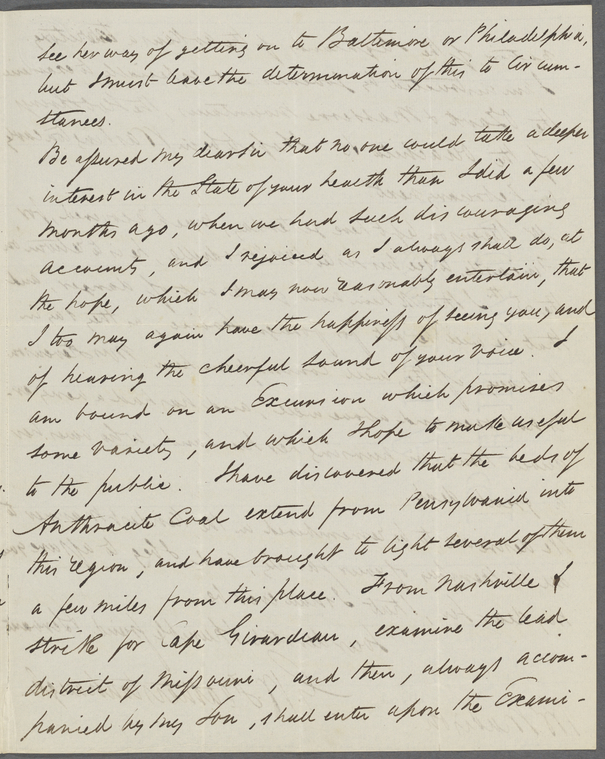 see her way of getting on to Baltimore or Philadelphia,
but I must leave the determination of this to Circum-
stances.
Be assured my dear Sir that no one could take a deeper
interest in the State of your health than I did a few
months ago, when we had such discouraging
accounts, and I rejoiced as I always shall do, at
the hope, which I may now reasonably entertain, that
I too may again have the happiness of seeing you, and
of hearing the cheerful sound of your voice. I
am bound on an Excursion which promises
some variety, and which I hope to make useful
to the public. I have discovered that the beds of
Anthracite Coal extend from Pensylvania into
this region, and have brought to light several of them
a few miles from this place. From Nashville I
strike for Cape Girardeau, examine the lead
district of Missouri, and then, always accom-
panied by my Son, shall enter upon the Exami-